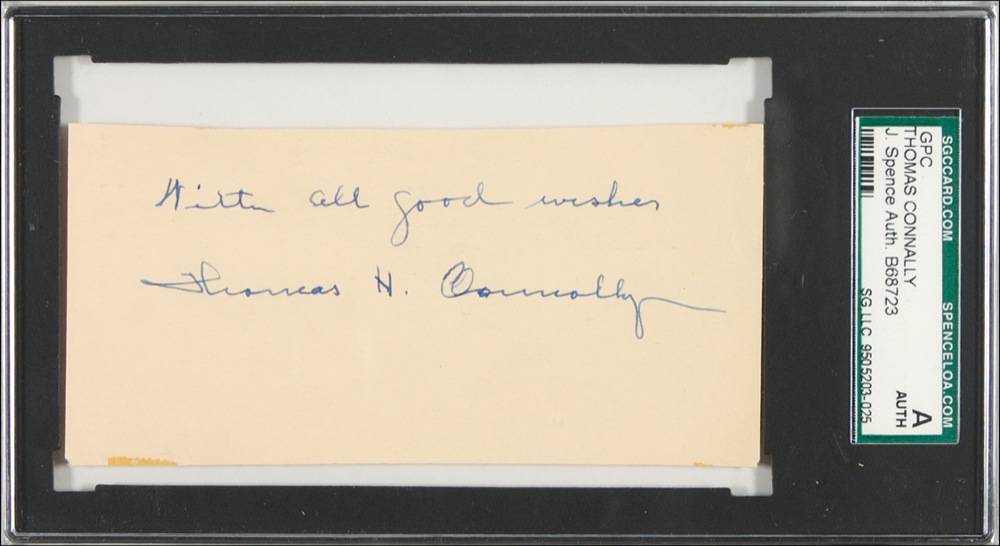 With all good wishes
Thomas H. Connolly
SGCCARD.COM SPENCELOA.COM
GPC
THOMAS CONNALLY
J. Spence Auth. B68723
A
AUTH
SG LLC 9505203-025